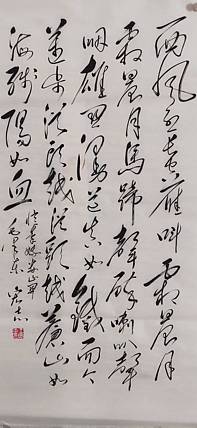 西風烈長空雁叫霜晨月
霜晨月馬蹄聲碎喇叭聲
咽雄關漫道真如鐵而今
邁步從頭越從頭越蒼山如
海殘陽如血
憶秦娥婁山關
毛澤東